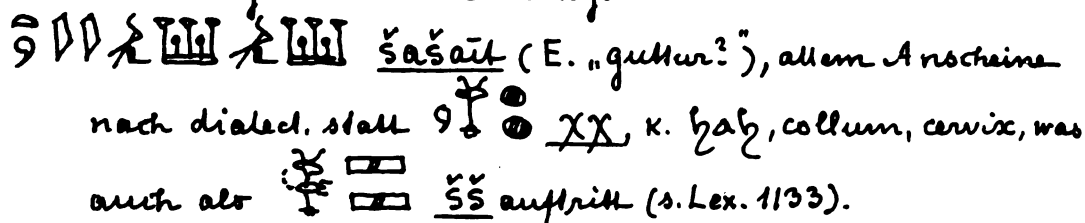 šašaīt (E. „guttur?"), allem Anscheine
nach dialect. statt χχ, κ. ϧⲁϧ, collum, cervix, was
auch als šš auftritt (s. Lex. 1133).